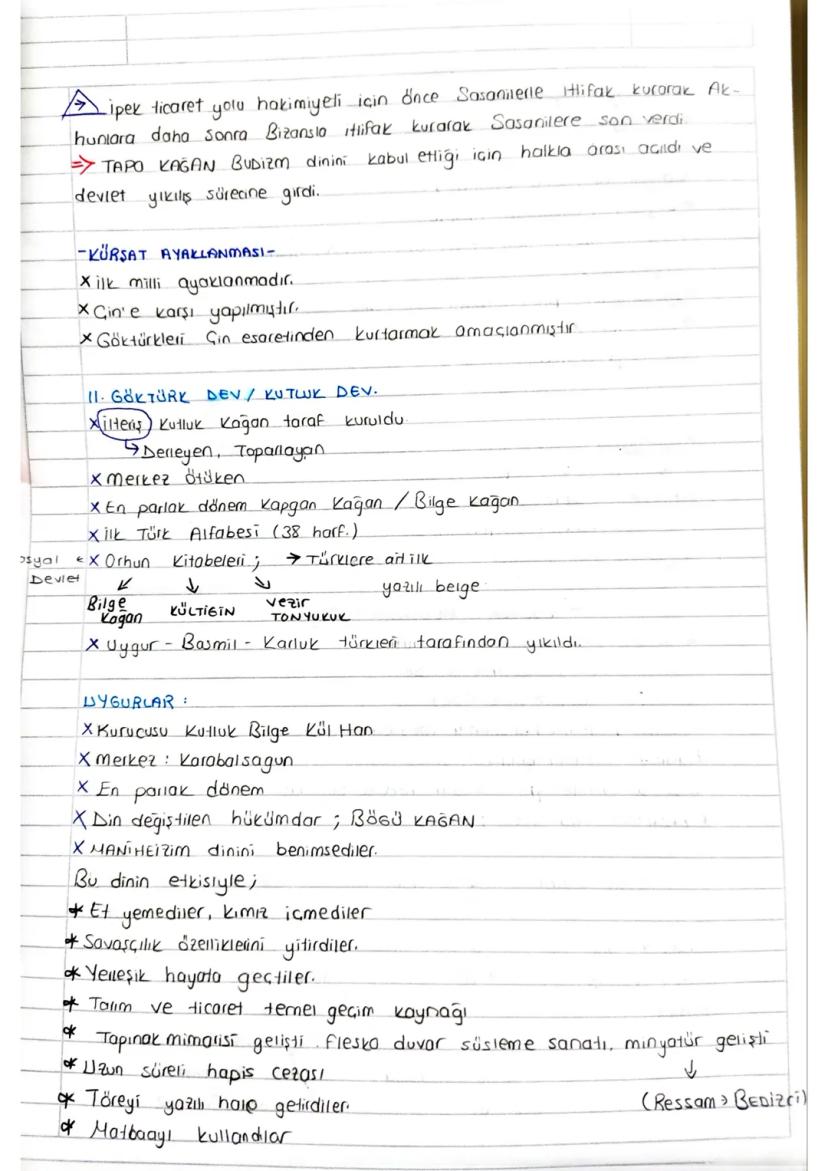 → ipek ticaret yolu hakimiyeti için önce Sasanilerle ittifak kurarak Ak-
hunlara daha sonra Bizansla ittifak kurarak Sasanilere son verdi
⇒ TAPO KAĞAN BUDİZM dinini kabul ettiği için halkla arası açıldı ve
devlet yıkılış sürecine girdi.
-KÜRŞAT AYAKLANMASI-
x ilk milli ayaklanmadır.
x Çin'e karşı yapılmıştır.
x Göktürkleri Çin esaretinden kurtarmak amaçlanmıştır
II. GÖKTÜRK DEV / KUTLUK DEV.
x ilteriş Kutluk Kağan taraf kuruldu
↳ Derleyen, Toparlayan
x merkez Ötüken
x En parlak dönem Kapgan Kağan / Bilge Kağan
x ilk Türk Alfabesi (38 harf.)
osyal ← x Orhun Kitabeleri ; → Türklere ait ilk
Devlet ↙ ↓ ↘ yazılı belge
Bilge Kağan KÜLTİGİN vezir TONYUKUK
x Uygur - Basmil - Karluk türkleri tarafından yıkıldı.
UYGURLAR :
x Kurucusu Kutluk Bilge Kül Han
x merkez : Karabalsagun
x En parlak dönem
x Din değiştiren hükümdar ; BÖGÜ KAĞAN
x MANİHEİZİM dinini benimsediler.
Bu dinin etkisiyle ;
* Et yemediler, kımız içmediler
* Savaşçılık özelliklerini yitirdiler.
* Yerleşik hayata geçtiler.
* Tarım ve ticaret temel geçim kaynağı
* Tapınak mimarisi gelişti. fresko duvar süsleme sanatı, minyatür gelişti
↓
* Uzun süreli hapis cezası
* Töreyi yazılı hale getirdiler. (Ressam > BEDİZCİ)
* Matbaayı kullandılar